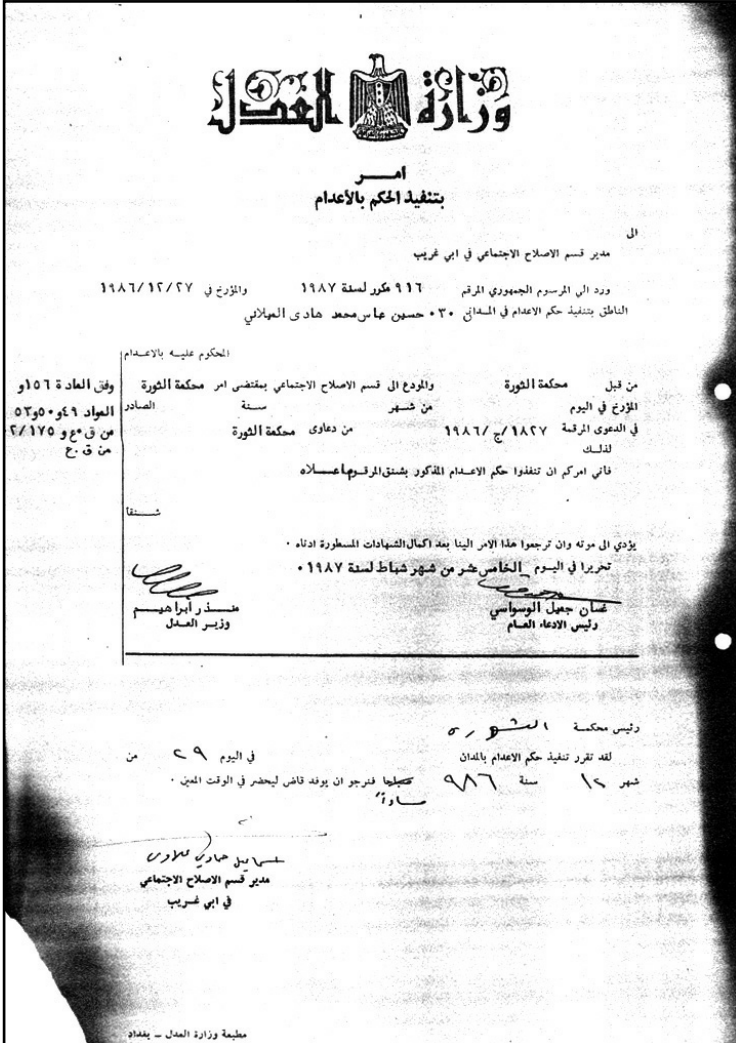 وزارة العدل
امر
بتنفيذ الحكم بالأعدام
الى
مدير قسم الاصلاح الاجتماعي في ابي غريب
ورد الي المرسوم الجمهوري المرقم ٩١٦ مكرر لسنة ١٩٨٧ والمؤرخ في ١٩٨٦/١٢/٢٧
الناطق بتنفيذ حكم الاعدام في المـدان ٠٣٠ حسين عباس محمد هادى
المحكوم عليـه بالاعـدام
من قبل محكمة الثورة والمودع الى قسم الاصلاح الاجتماعي بمقتضى امر محكمة الثورة وفق المادة ١٥٦و
المؤرخ في اليوم من شـهر سـنة الصادر المواد ٤٩و٥٠و٥٣
في الدعوى المرقمة ١٨٢٧/ج/١٩٨٦ من دعاوى محكمة الثورة من ق٠ع و ٢/١٧٥
لذلـك من ق٠ع
فأني امركم ان تنفذوا حكم الاعـدام المذكور بشنق المرقـوم اعـــلاه
شــنقا
يؤدي الى موته وان ترجعوا هذا الامر الينا بعد اكمال الشهادات المسطورة ادناه ٠
تحريرا في اليـوم الخامس عشر من شهر شباط لسنة ١٩٨٧ ٠
غسان جميل الوسواسي
رئيس الادعاء العـام
منــذر أبراهيــم
وزيـر العـدل
رئيس محكمـة الثــورة
لقد تقرر تنفيذ حكم الاعدام بالمدان في اليوم ٢٩ من
شهر ١٢ سنة ٩٨٦ صباحا فنرجو ان يوفد قاض ليحضر في الوقت المعين ٠
مساءً
مدير قسم الاصلاح الاجتماعي
في ابي غـريب
مطبعة وزارة العدل ــ بغداد